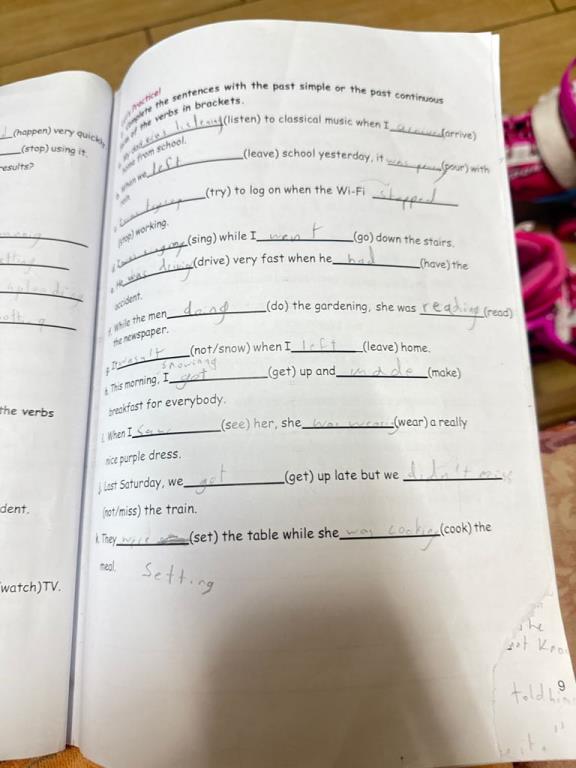 (happen) very quickly
(stop) using it.
results?
the verbs
dent.
(watch)TV.
Practice!
Complete the sentences with the past simple or the past continuous
form of the verbs in brackets.
a. My dad was listening (listen) to classical music when I arrived (arrive)
home from school.
b. When we left (leave) school yesterday, it was (pour) with
rain.
c. I was trying (try) to log on when the Wi-Fi stopped
(stop) working.
d. I was singing (sing) while I went (go) down the stairs.
e. He was driving (drive) very fast when he had (have) the
accident.
f. While the men doing (do) the gardening, she was reading (read)
the newspaper.
g. It wasn't (not/snow) when I left (leave) home.
snowing
h. This morning, I got (get) up and made (make)
breakfast for everybody.
i. When I saw (see) her, she was wearing (wear) a really
nice purple dress.
j. Last Saturday, we got (get) up late but we didn't miss
(not/miss) the train.
k. They were (set) the table while she was cooking (cook) the
meal. Setting
9
told him